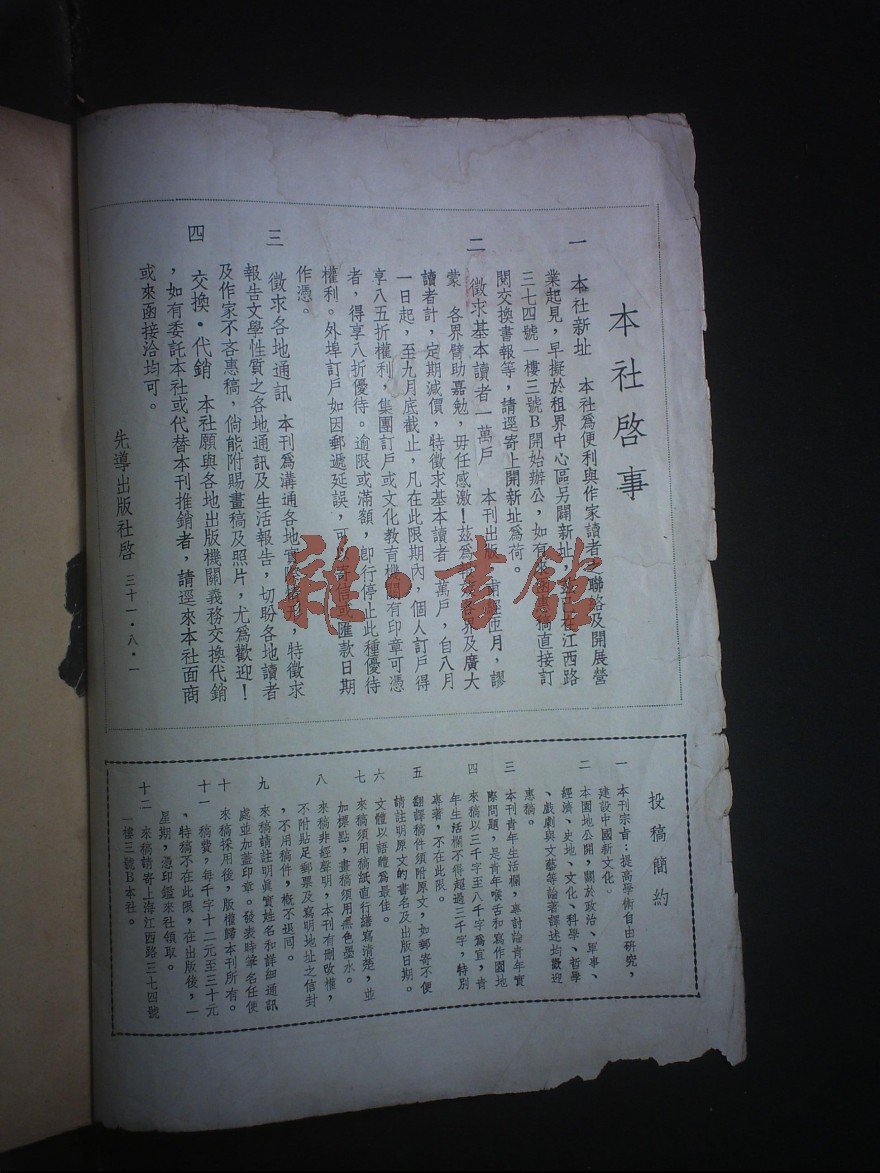 本社啓事
一　本社新址　本社爲便利與作家讀者之聯絡及開展營
業起見，早擬於租界中心區另闢新址，茲已在江西路
三七四號一樓三號B開始辦公，如有
稿直接訂
閱交換書報等，請逕寄上開新址爲荷。
二　徵求基本讀者一萬戶　本刊出版
甫經匝月，謬
蒙　各界臂助嘉勉，毋任感激！茲爲
各界及廣大
讀者計，定期減價，特徵求基本讀者一萬戶，自八月
一日起，至九月底截止，凡在此限期內，個人訂戶得
享八五折權利，集團訂戶或文化教育機關有印章可憑
者，得享八折優待。逾限或滿額，卽行停止此種優待
權利。外埠訂戶如因郵遞延誤，可以寄信或匯款日期
作憑。
三　徵求各地通訊　本刊爲溝通各地實際情形，特徵求
報告文學性質之各地通訊及生活報告，切盼各地讀者
及作家不吝惠稿，倘能附賜畫稿及照片，尤爲歡迎！
四　交換・代銷　本社願與各地出版機關義務交換代銷
，如有委託本社或代替本刊推銷者，請逕來本社面商
或來函接洽均可。
先導出版社啓　三十一・八・一
投稿簡約
一　本刊宗旨：提高學術自由研究，
建設中國新文化。
二　本園地公開，關於政治、軍事、
經濟、史地、文化、科學、哲學
、戲劇與文藝等論著譯述均歡迎
惠稿。
三　本刊青年生活欄，專討論青年實
際問題，是青年喉舌和寫作園地
四　來稿以三千字至八千字爲宜，青
年生活欄不得超過三千字，特別
專著，不在此限。
五　翻譯稿件須附原文，如郵寄不便
請註明原文的書名及出版日期。
六　文體以語體爲最佳。
七　來稿須用稿紙直行繕寫清楚，並
加標點，畫稿須用黑色墨水。
八　來稿非經聲明，本刊有刪改權，
不附貼足郵票及寫明地址之信封
，不用稿件，槪不退囘。
九　來稿請註明眞實姓名和詳細通訊
處並加蓋印章。發表時筆名任便
十　來稿採用後，版權歸本刊所有。
十一　稿費，每千字十二元至三十元
，特稿不在此限，在出版後，一
星期，憑印鑑來社領取。
十二　來稿請寄上海江西路三七四號
一樓三號B本社。
雜・書館